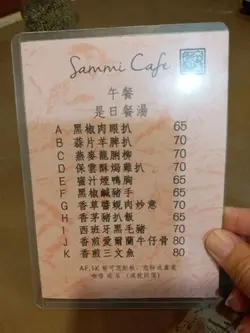 Sammi Cafe
午餐
是日餐湯
A 黑椒肉眼扒 65
B 蒜片羊脾扒 70
C 燕麥龍脷柳 70
D 保雲酥焗雞扒 70
E 蜜汁煙鴨胸 70
F 黑椒鹹豬手 65
G 香草醬蜆肉炒意 70
H 香茅豬扒飯 65
I 西班牙黑毛豬 70
J 香煎愛爾蘭牛仔骨 80
K 香煎三文魚 80